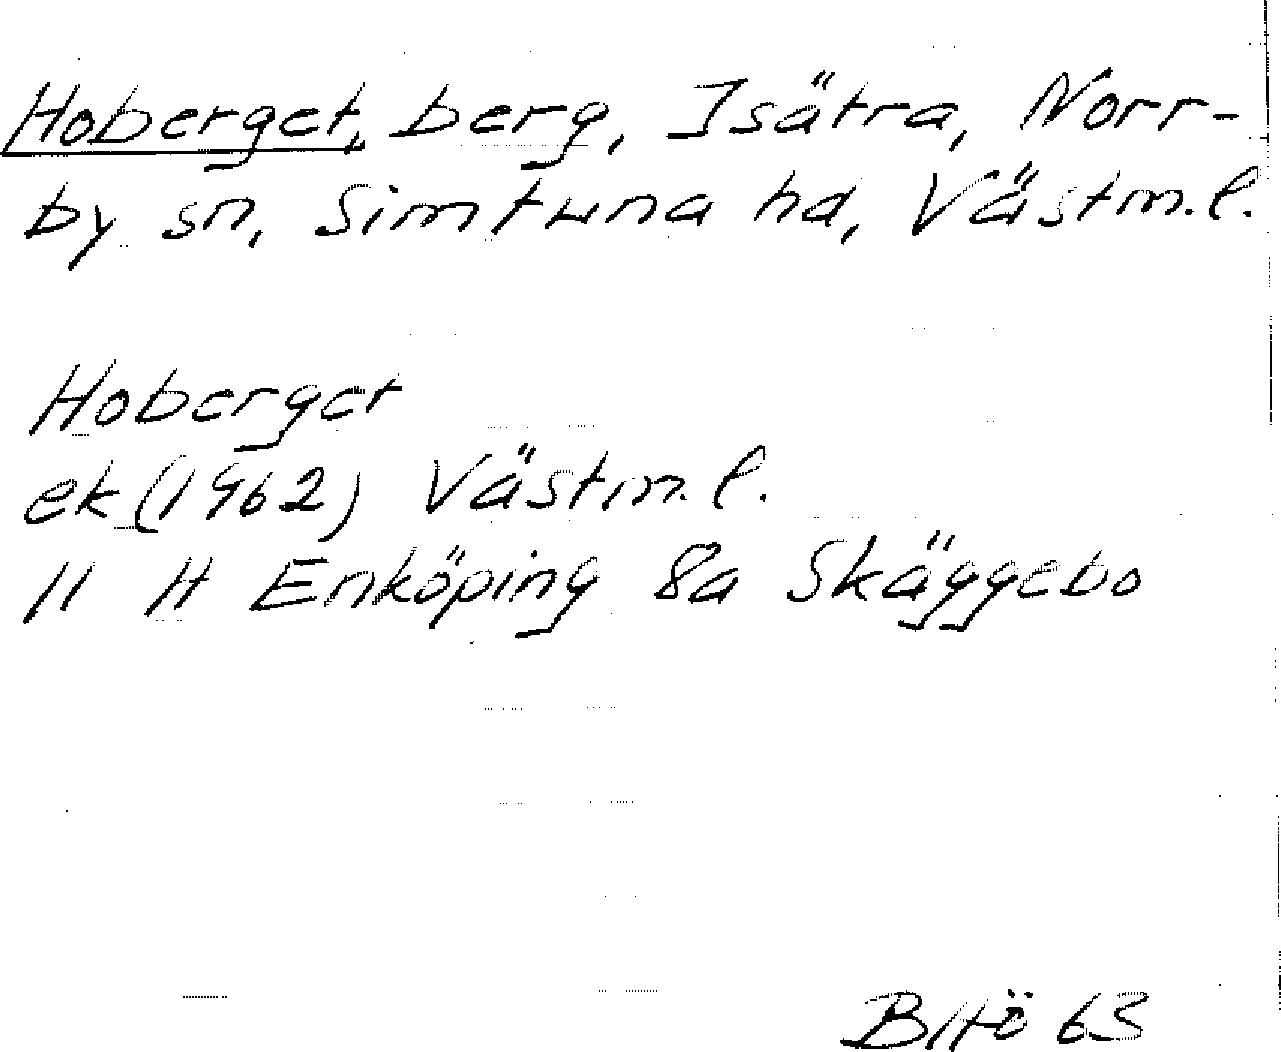 Hoberget, berg, Isätra, Norr-
by sn, Simtuna hd, Västm.l.
Hoberget
ek (1962) Västm.l.
11 H Enköping 8a Skäggebo
BHö 63